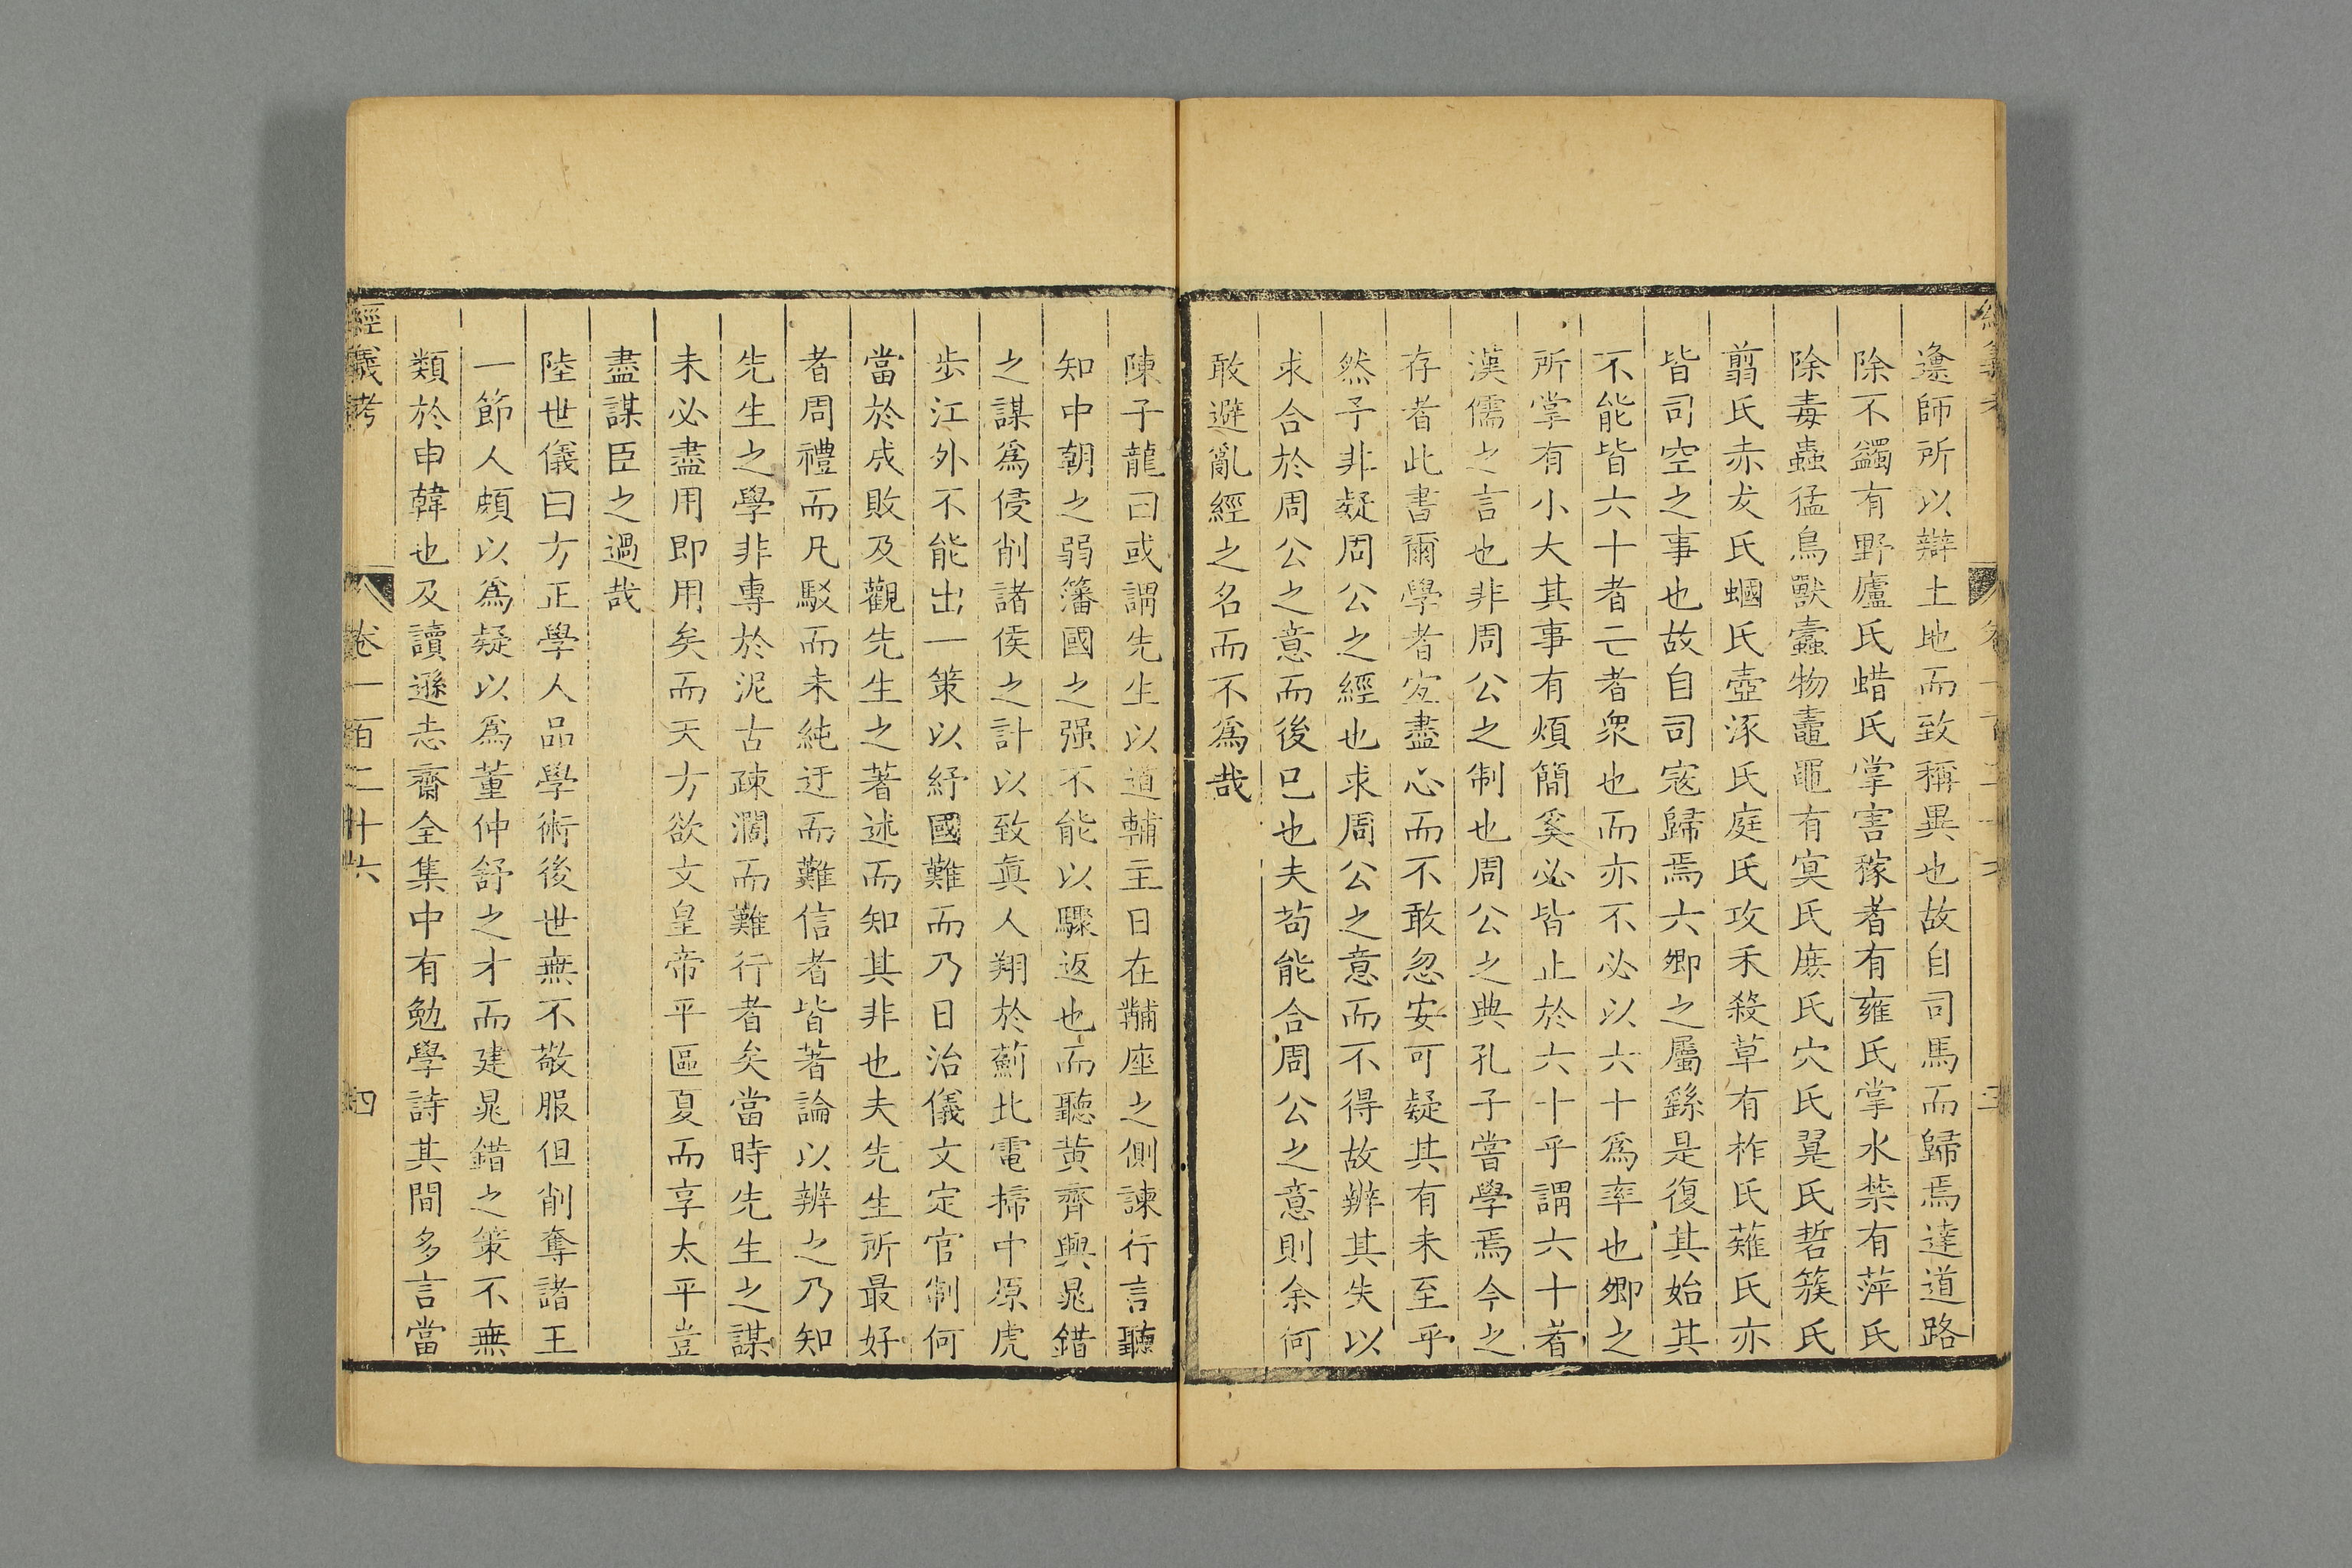 邍師所以辯土地而致稱異也故自司馬而歸焉達道路
除不蠲有野廬氏蜡氏掌害稼者有雍氏掌水禁有萍氏
除毒蟲猛鳥獸蠹物鼃黽有㝠氏庶氏穴氏翨氏硩簇氏
翦氏赤犮氏蟈氏壺涿氏庭氏攻禾殺草有柞氏薙氏亦
皆司空之事也故自司宼歸焉六卿之屬繇是復其始其
不能皆六十者亡者衆也而亦不必以六十爲率也卿之
所掌有小大其事有煩簡奚必皆止於六十乎謂六十者
漢儒之言也非周公之制也周公之典孔子嘗學焉今之
存者此書爾學者宐盡心而不敢忽安可疑其有未至乎
然予非疑周公之經也求周公之意而不得故辨其失以
求合於周公之意而後已也夫苟能合周公之意則余何
敢避亂經之名而不爲哉
陳子龍曰或謂先生以道輔主日在黼座之側諫行言聽
知中朝之弱籓國之强不能以驟返也而聽黄齊興晁錯
之謀爲侵削諸侯之計以致真人翔於薊北電掃中原虎
步江外不能出一策以紓國難而乃日治儀文定官制何
當於成敗及觀先生之著述而知其非也夫先生所最好
者周禮而凡駁而未純迂而難信者皆著論以辨之乃知
先生之學非專於泥古疎濶而難行者矣當時先生之謀
未必盡用即用矣而天方欲文皇帝平區夏而享太平豈
盡謀臣之過哉
陸世儀曰方正學人品學術後世無不敬服但削奪諸王
一節人頗以爲疑以爲董仲舒之才而建晁錯之策不無
類於申韓也及讀遜志齋全集中有勉學詩其間多言當
經義考 卷一百二十六 四